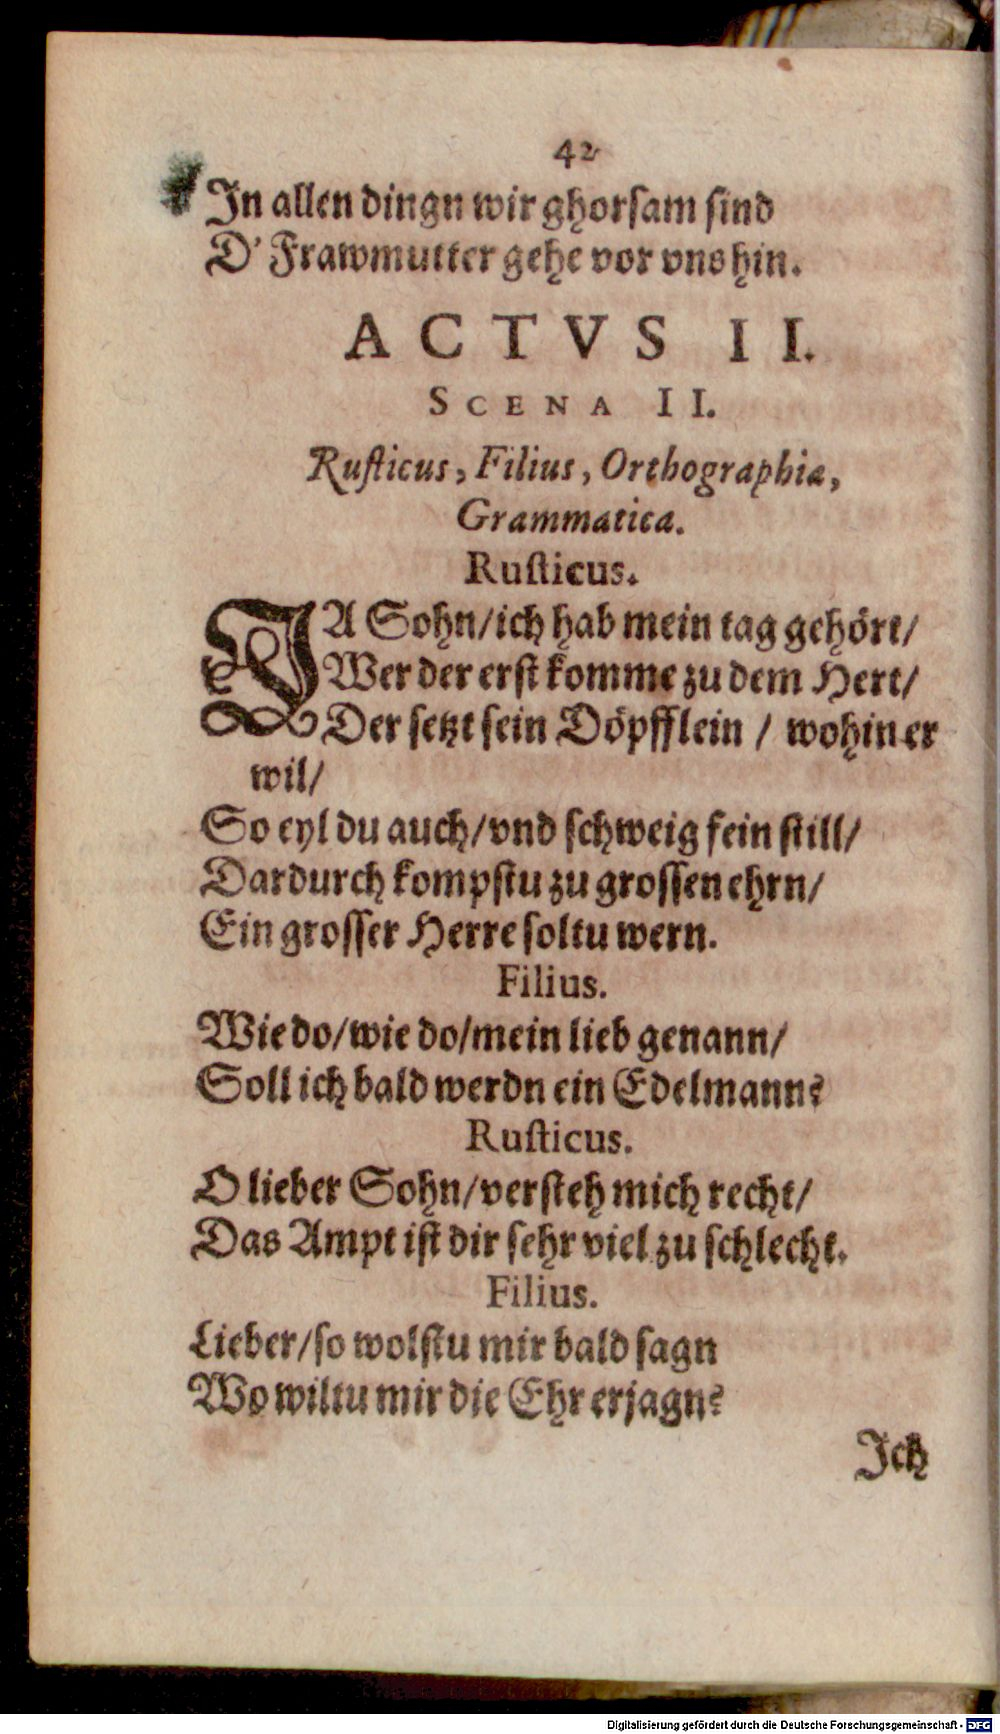 42
In allen dingn wir ghorsam sind
D' Frawmutter gehe vor vns hin.
ACTVS II.
SCENA II.
Rusticus, Filius, Orthographia,
Grammatica.
Rusticus.
JA Sohn/ich hab mein tag gehört/
Wer der erst komme zu dem Hert/
Der setzt sein Döpfflein / wohin er
wil/
So eyl du auch/vnd schweig fein still/
Dardurch kompstu zu grossen ehrn/
Ein grosser Herre soltu wern.
Filius.
Wie do/wie do/mein lieb genann/
Soll ich bald werdn ein Edelmann?
Rusticus.
O lieber Sohn/versteh mich recht/
Das Ampt ist dir sehr viel zu schlecht.
Filius.
Lieber/so wolstu mir bald sagn
Wo wiltu mir die Ehr erjagn?
Ich
Digitalisierung gefördert durch die Deutsche Forschungsgemeinschaft - DFG